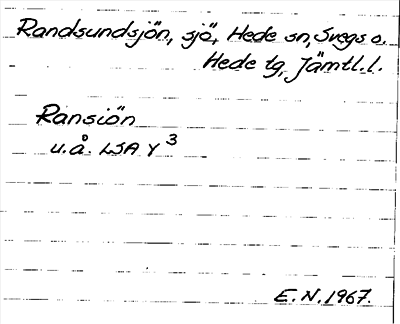 Randsundsjön, sjö, Hede sn, Svegs o.
Hede tg, Jämtl.l.
Ransiön
u.å. LSA Y 3
E.N. 1967.